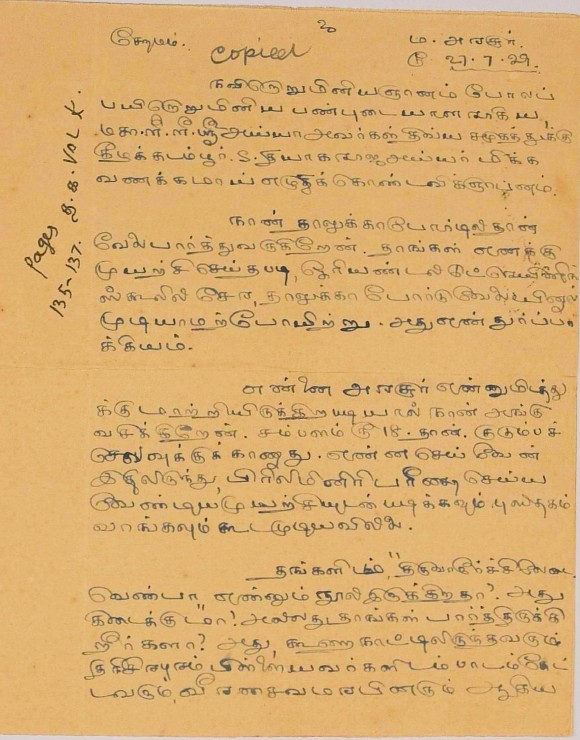 க்ஷேமம்.
copied
ம. அரசூர்.
27.7.29.
நவிறொறுமினியஞானம் போலப்
பயிறொறுமினிய பண்புடையாளராகிய,
மகா-ள-ள-ஸ்ரீ அய்யா அவர்கள் திவ்ய சமூகத்துக்கு
கீழக்கடம்பூர். S. தியாகராஜ அய்யர் மிக்க
வணக்கமாய் எழுதிக்கொண்ட விக்ஞாபனம்.
நான் தாலுக்காபோர்டில்தான்
வேலைபார்த்துவருகிறேன். தாங்கள் எனக்கு
முயற்சி செய்தபடி, ஓரியண்டல்
ஸ்கூலில் சேர, தாலுக்கா போர்டு
முடியாமற்போயிற்று. அது என் துர்ப்பா
க்கியம்.
என்னை அரசூர் என்னுமிடத்து
க்கு மாற்றியிருக்கிறபடியால் நான் அங்கு
வசிக்கிறேன். சம்பளம் ரூ 18. தான். குடும்பச்
செலவுக்குக் காணாது. என்ன செய்வேன்
இதிலிருந்து, பிரிலிமினிரி பரீக்ஷை செய்ய
வேண்டியமுயற்சியுடன் படிக்கவும், புஸ்தகம்
வாங்கவும்கூட முடியவில்லை.
தங்களிடம், "திருவாதிரைச்சிலேடை
வெண்பா என்னும் நூல் இருக்கிறதா? அது
கிடைக்குமா? அல்லது தாங்கள் பார்த்திருக்கி
றீர்களா? அது, காட்டிலிருந்தவரும்
திரிசிரபுரம், பிள்ளையவர்களிடம் பாடம்கேட்
டவரும், வீரசைவமரபினரும் ஆகிய
Pages
135-137. தி.க. VOL X.